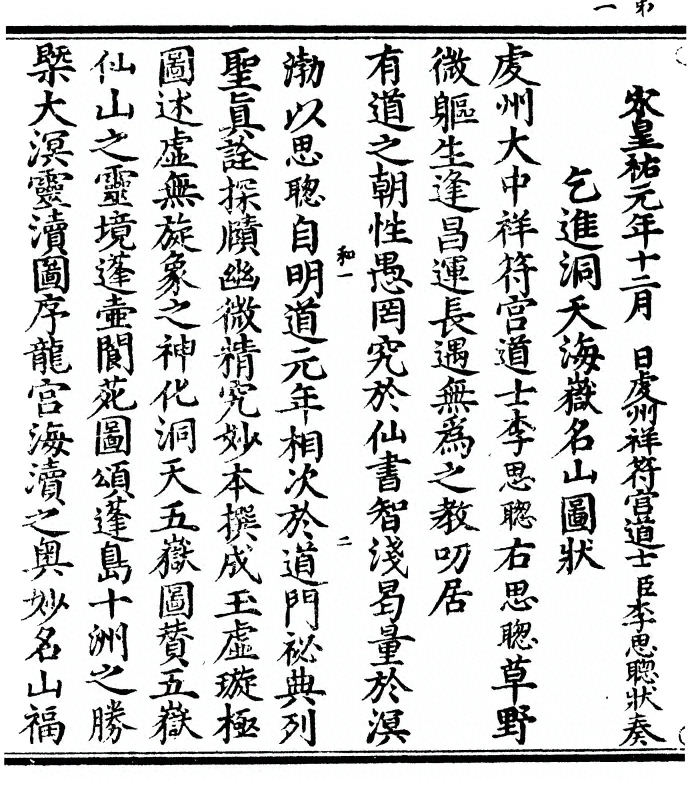 第一
宋皇祐元年十二月 日虔州祥符宮道士臣李思聰狀奏
乞進洞天海嶽名山圖狀
虔州大中祥符宮道士李思聰右思聰草野
微軀生逢昌運長遇無為之教叨居
有道之朝性愚罔究於仙書智淺曷量於溟
和一
二
渤以思聰自明道元年相次於道門祕典列
聖真詮探賾幽微精究妙本撰成玉虛璇極
圖述虛無旋象之神化洞天五嶽圖贊五嶽
仙山之靈境蓬壺閬苑圖頌蓬島十洲之勝
槩大溟靈瀆圖序龍宮海瀆之奧妙名山福